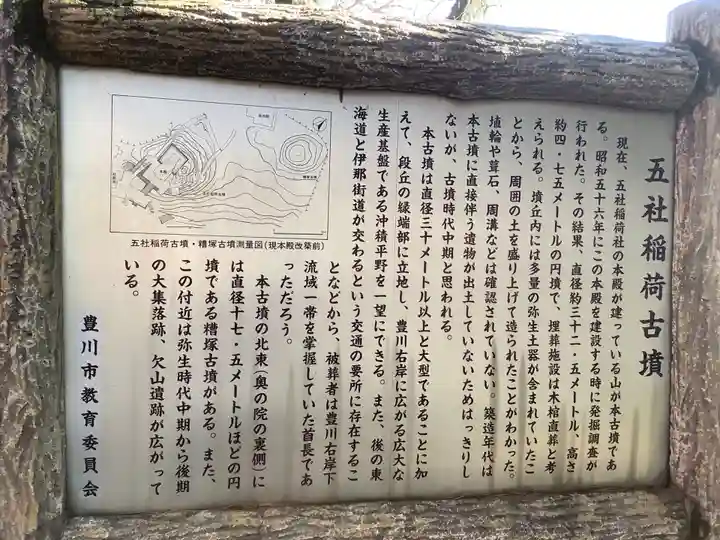 五社稲荷古墳
現在、五社稲荷社の本殿が建っている山が本古墳であ
る。昭和五十六年にこの本殿を建設する時に発掘調査が
行われた。その結果、直径約三十二・五メートル、高さ
約四・七五メートルの円墳で、埋葬施設は木棺直葬と考
えられる。墳丘内には多量の弥生土器が含まれていたこ
とから、周囲の土を盛り上げて造られたことがわかった。
埴輪や葺石、周溝などは確認されていない。築造年代は
本古墳に直接伴う遺物が出土していないためはっきりし
ないが、古墳時代中期と思われる。
本古墳は直径三十メートル以上と大型であることに加
えて、段丘の縁端部に立地し、豊川右岸に広がる広大な
生産基盤である沖積平野を一望にできる。また、後の東
海道と伊那街道が交わるという交通の要所に存在するこ
となどから、被葬者は豊川右岸下
流域一帯を掌握していた首長であ
っただろう。
本古墳の北東(奥の院の裏側)に
は直径十七・五メートルほどの円
墳である糟塚古墳がある。また、
この付近は弥生時代中期から後期
の大集落跡、欠山遺跡が広がって
いる。
豊川市教育委員会
五社稲荷古墳・糟塚古墳測量図(現本殿改築前)